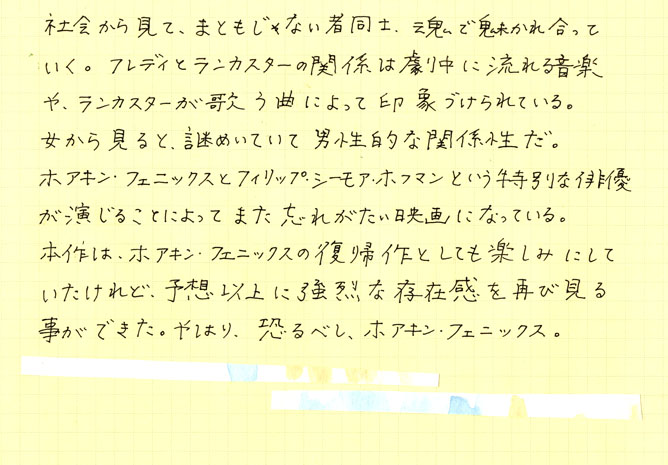 社会から見て、まともじゃない者同士、魂で魅かれ合って
いく。フレディとランカスターの関係は劇中に流れる音楽
や、ランカスターが歌う曲によって印象づけられている。
女から見ると、謎めいていて男性的な関係性だ。
ホアキン・フェニックスとフィリップ・シーモア・ホフマンという特別な俳優
が演じることによってまた忘れがたい映画になっている。
本作は、ホアキン・フェニックスの復帰作としても楽しみにして
いたけれど、予想以上に強烈な存在感を再び見る
事ができた。やはり、恐るべし、ホアキン・フェニックス。